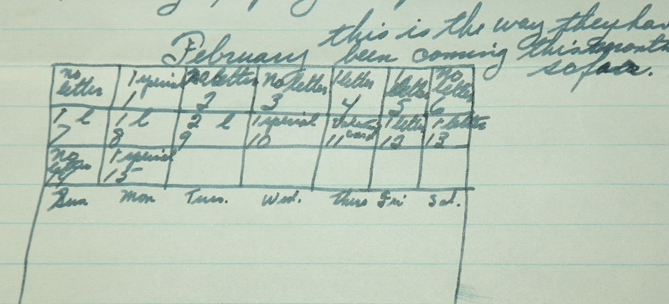 this is the way they hav
February been coming this month
so far.
no letter 1 special no letter no letter 1 letter 1 letter no letter
1 2 3 4 5 6
1 l 1 l 2 l 1 special card 1 letter 1 letter
7 8 9 10 11 12 13
no letter 1 special
14 15
Sun Mon Tues. Wed. Thurs Fri Sat.